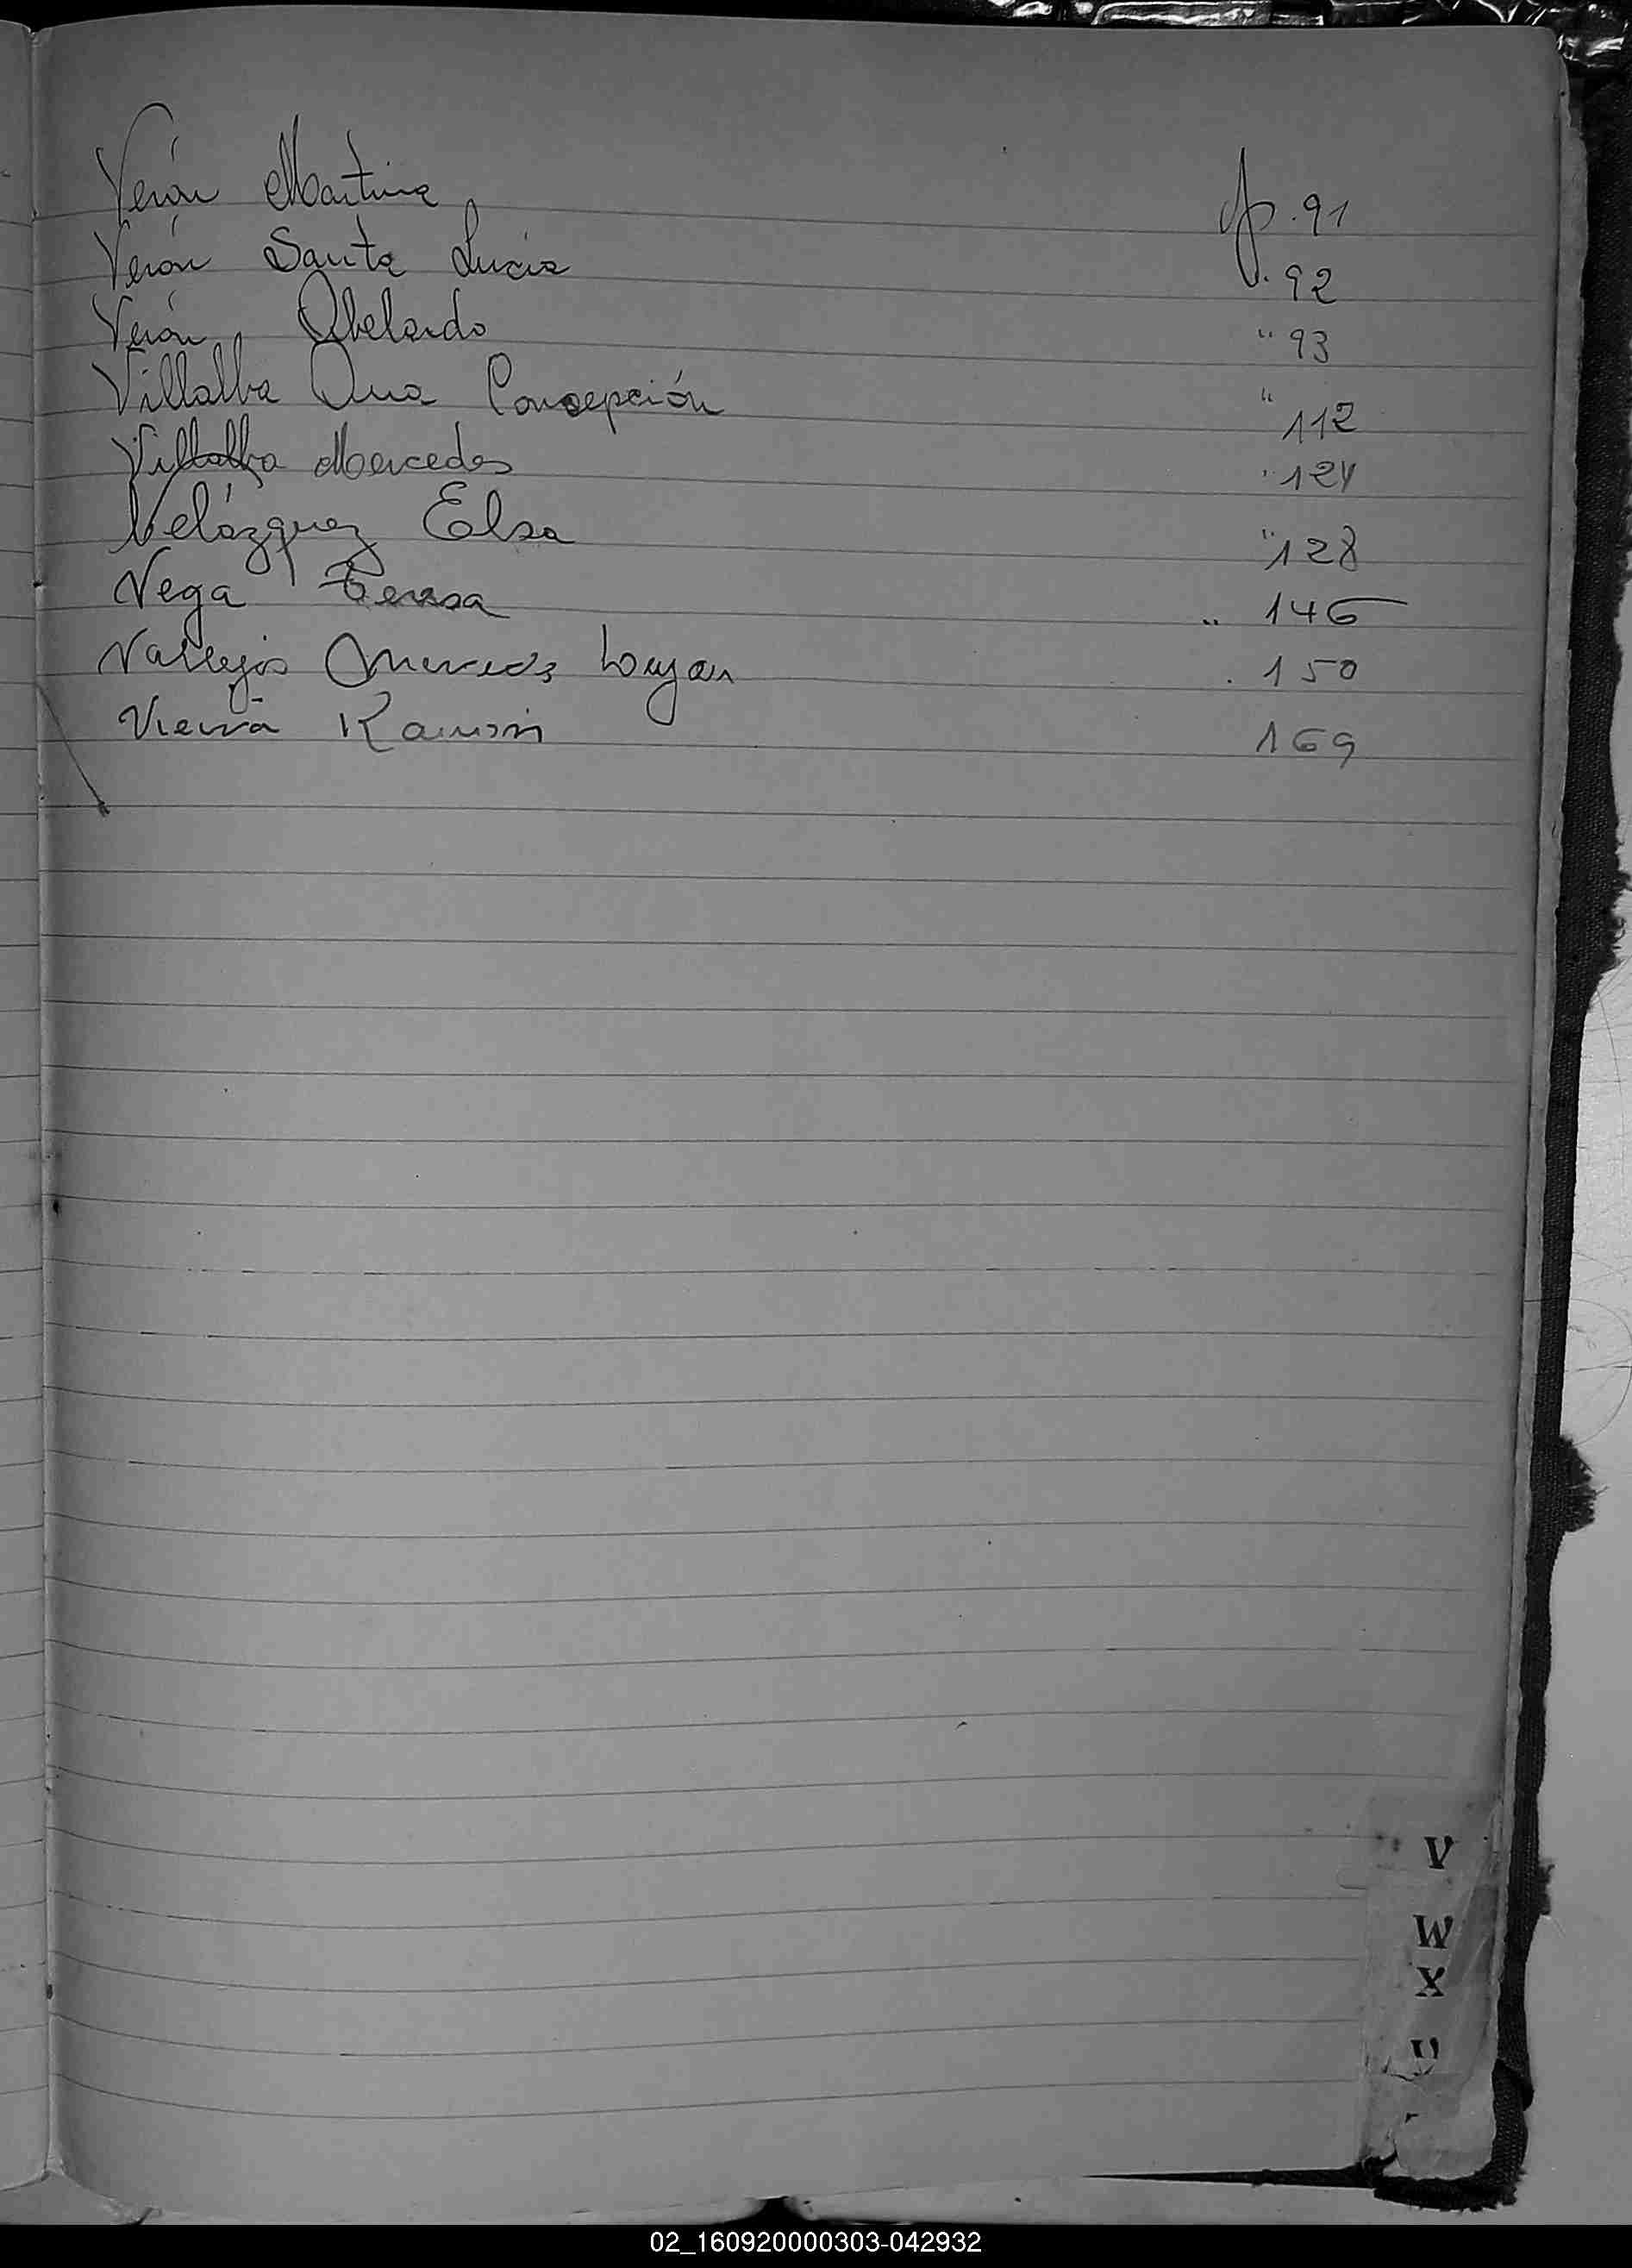 Verón Martina p. 91
Verón Santa Lucia . 92
Verón Abelardo " 93
Villalba Ana Concepción " 112
Villalba Mercedes " 124
Velázquez Elsa " 128
Vega Teresa " 146
Vallejos Lujan . 150
Vieira Ramón 169
V
W
X
02_160920000303-042932